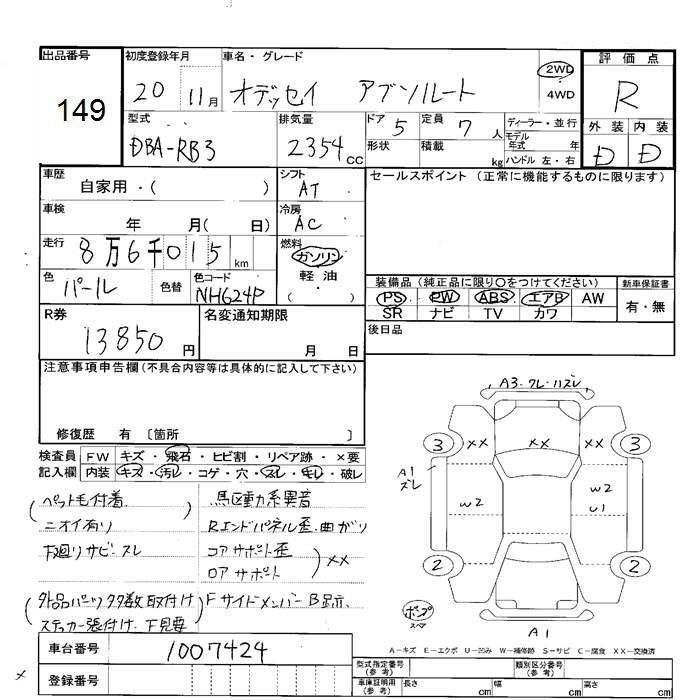 出品番号
149
初度登録年月
20 11月
車名・グレード
オデッセイ アブソルート
2WD
4WD
評価点
R
型式
DBA-RB3
排気量
2354cc
ドア 5
形状
定員 7人
積載 kg
ディーラー・並行
モデル年式 年
ハンドル 左・右
外装 内装
D D
車歴
自家用・( )
シフト
AT
セールスポイント (正常に機能するものに限ります)
車検
年 月( 日)
冷房
AC
走行
8万6千015km
燃料
ガソリン
軽油
( ・ )
色
パール
色替
色コード
NH624P
装備品 (純正品に限り○をつけてください)
PS PW ABS エアB AW
SR ナビ TV カワ
新車保証書
有・無
R券
13850円
名変通知期限
月 日
後日品
注意事項申告欄(不具合内容等は具体的に記入して下さい)
修復歴 有 〔箇所 〕
検査員記入欄
FW キズ・飛石・ヒビ割・リペア跡・×要
内装 キズ・汚レ・コゲ・穴・スレ・キレ・破レ
ペット毛付着
ニオイ有り
下廻りサビ・スレ
外品パーツ多数取付け
ステッカー張付け・下見要
駆動系異音
Rエンドパネル歪・曲がり
コアサポート歪
ロアサポート
××
Fサイドメンバー B跡
A3・ワレ・ハズレ
3
××
××
××
3
A1
ズレ
W2
W2
U1
2
2
ポンプ
スペア
A1
A-キズ E-エクボ U-凹み W-補修跡 S-サビ C-腐食 XX-交換済
車台番号
1007424
登録番号
×
型式指定番号
(参考)
類別区分番号
(参考)
車庫証明用
(参考)
長さ cm
幅 cm
高さ cm